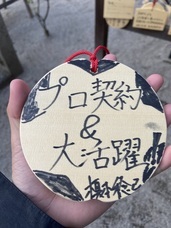 プロ契約
&
大活躍!!